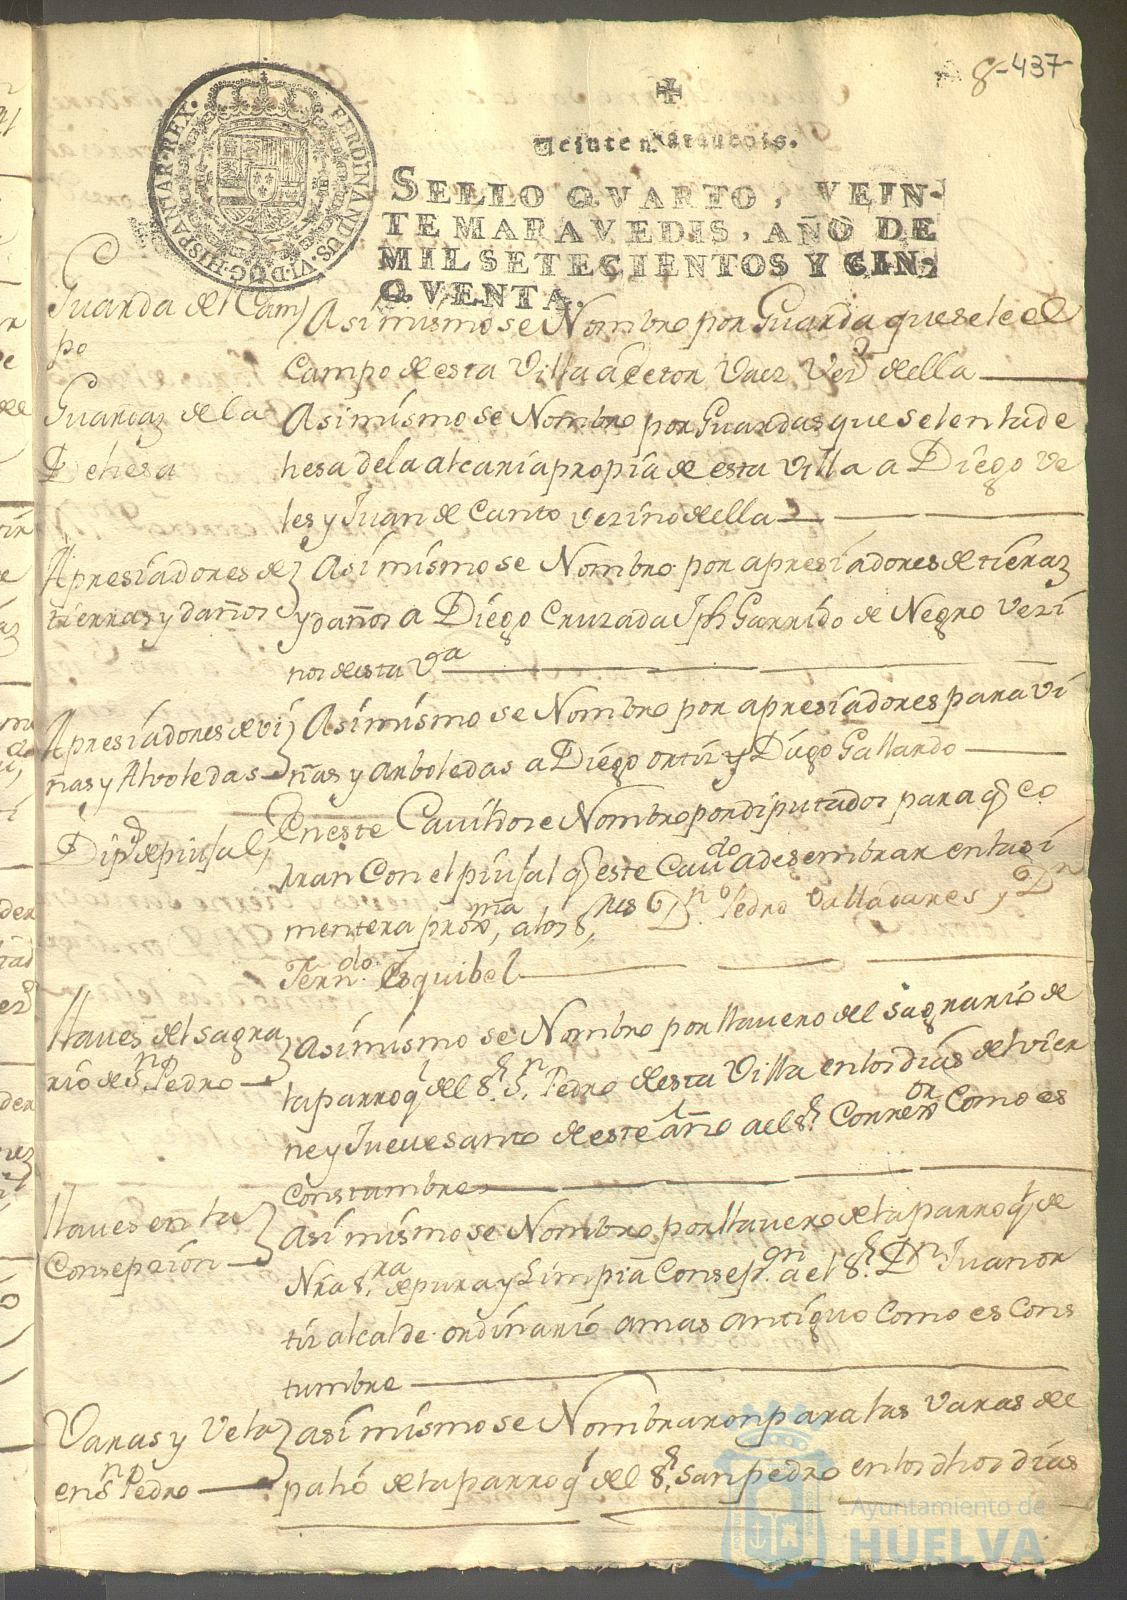 8-437-
FERDINANDUS·VI·D·G·HISPANIAR·REX·
Veinte maravedis.
SELLO QVARTO, VEIN-
TE MARAVEDIS, AÑO DE
MIL SETECIENTOS Y CIN-
QVENTA.
Guarda del Cam
po
Asi mismo se Nombro por Guarda que sele el
Campo de esta Villa a Vez.º della
Guardaz de la
Dehesa
Asi mismo se Nombro por Guardas que selen la de
hesa de la alcaria propia de esta Villa a Diego Ve
les y Juan de Canto Vezino della
Apresiadores de
tierras y daños
Asi mismo se Nombro por apresiadores de tieraz
y daños a Diego Cruzada Jph Garrido de Negro Vezi
nos de esta Vª
Apresiadores de vi
ñas y Alvoledas
Asi mismo se Nombro por apresiadores para Vi
ñas y arboledas a Diego ortiz y Diego Gallardo
Dip.d de piujal,
En este Cavildo se Nombro por diputados para q̃ co
rran Con el piujal q̃ este Cauᵈᵒ a de sembrar en la si
mentera proxᵐᵃ, a los S,res Dⁿ. Pedro Valladares y Dⁿ
Fernᵈᵒ. Esquibel
Llaves del sagra
rio de Sⁿ. Pedro
Asi mismo se Nombro por llavero del sagrario de
la parroqˡ del Sʳ. Sⁿ. Pedro de esta Villa en los dias del vier
ne y Jueve santo de este año a el Sʳ. Correᵒʳ Como es
Constumbre
Llaves en la
Consepsion
Asi mismo se Nombro por llavero de la parroqˡ de
Nra Sʳᵃ. de pura y Limpia Consepᵒⁿ. a el Sʳ. Dⁿ Juan or
tiz alcalde ordinario a mas antiguo Como es Cons
tumbre
Varas y Vela
en Sⁿ Pedro
asi mismo se Nombraron para las varas de
palio de la parroqˡ del Sʳ. San pedro en los dhos dias
Ayuntamiento de
HUELVA